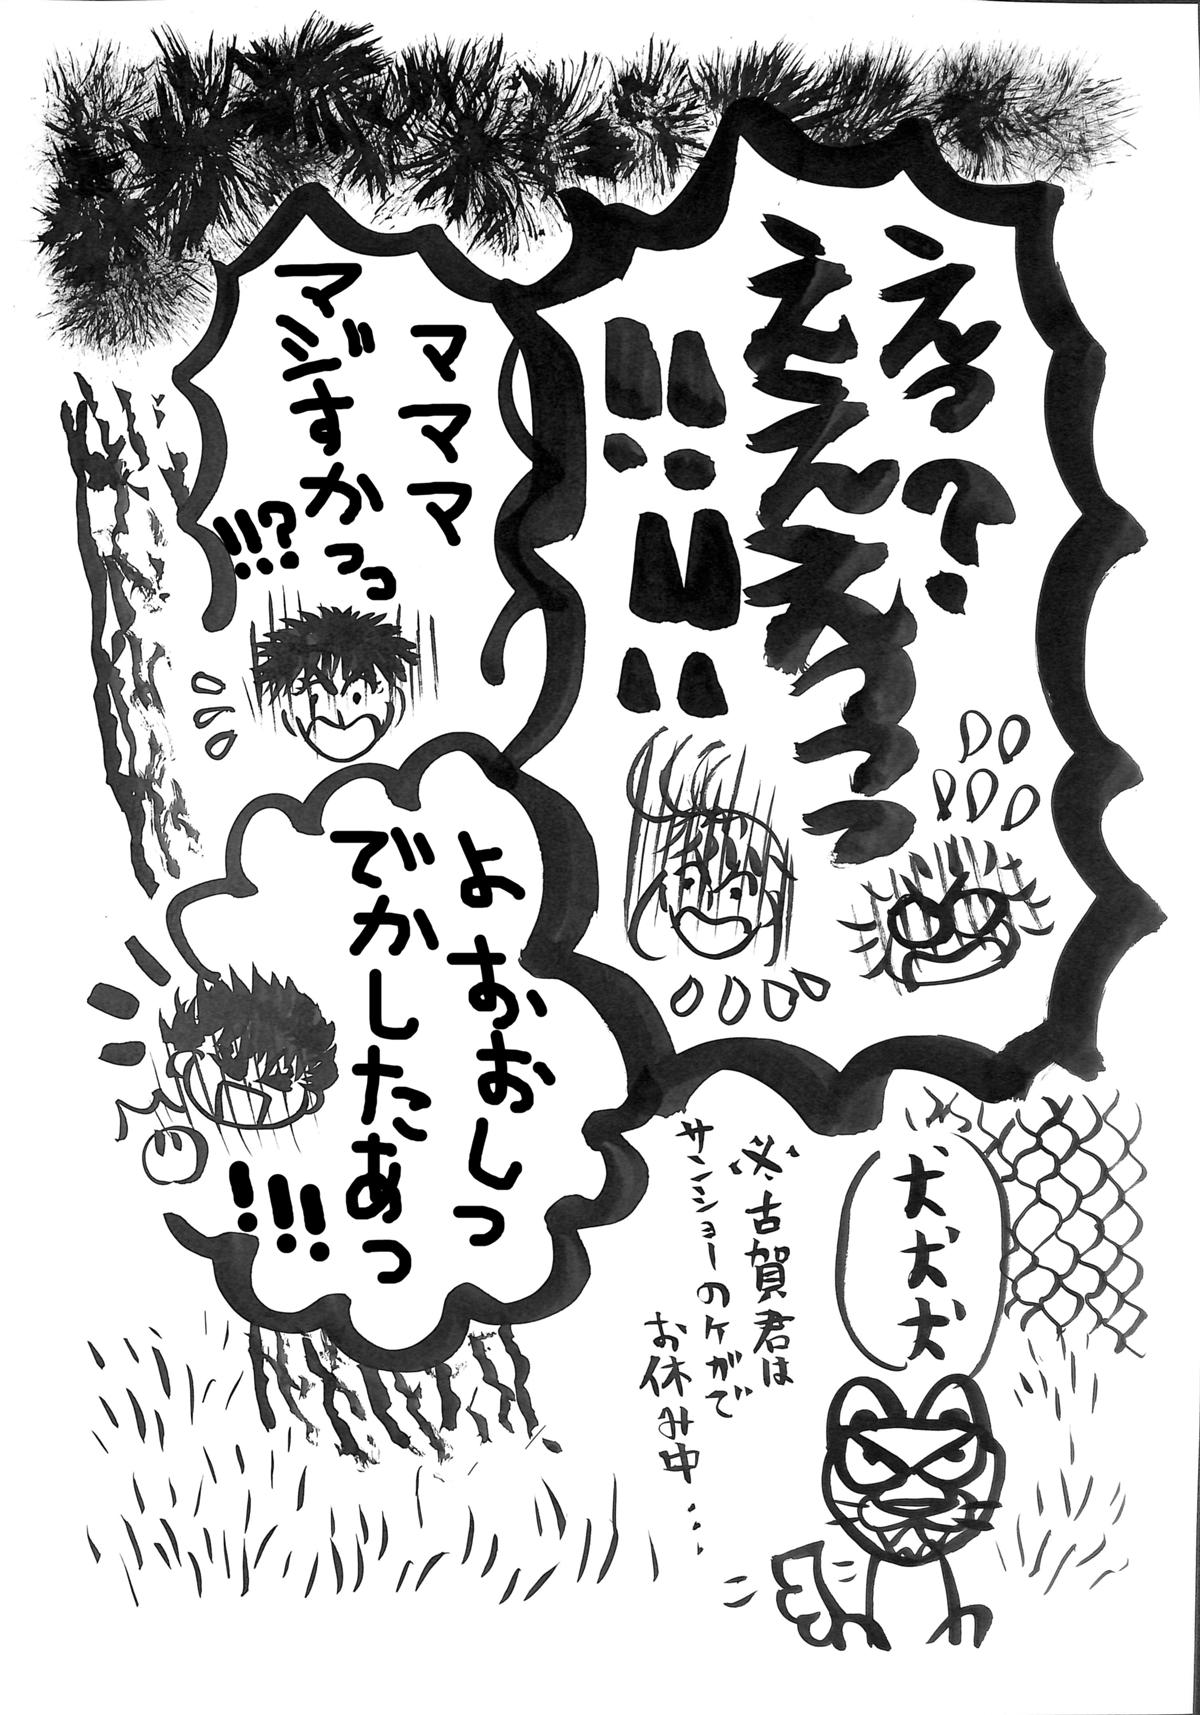 えっ?
ええええっっっ
!!!!
マママ
マジすかっっ
!!!?
よおおしっ
でかしたあっ
!!!
犬犬犬
※古賀君は
サンショーのケガで
お休み中・・・